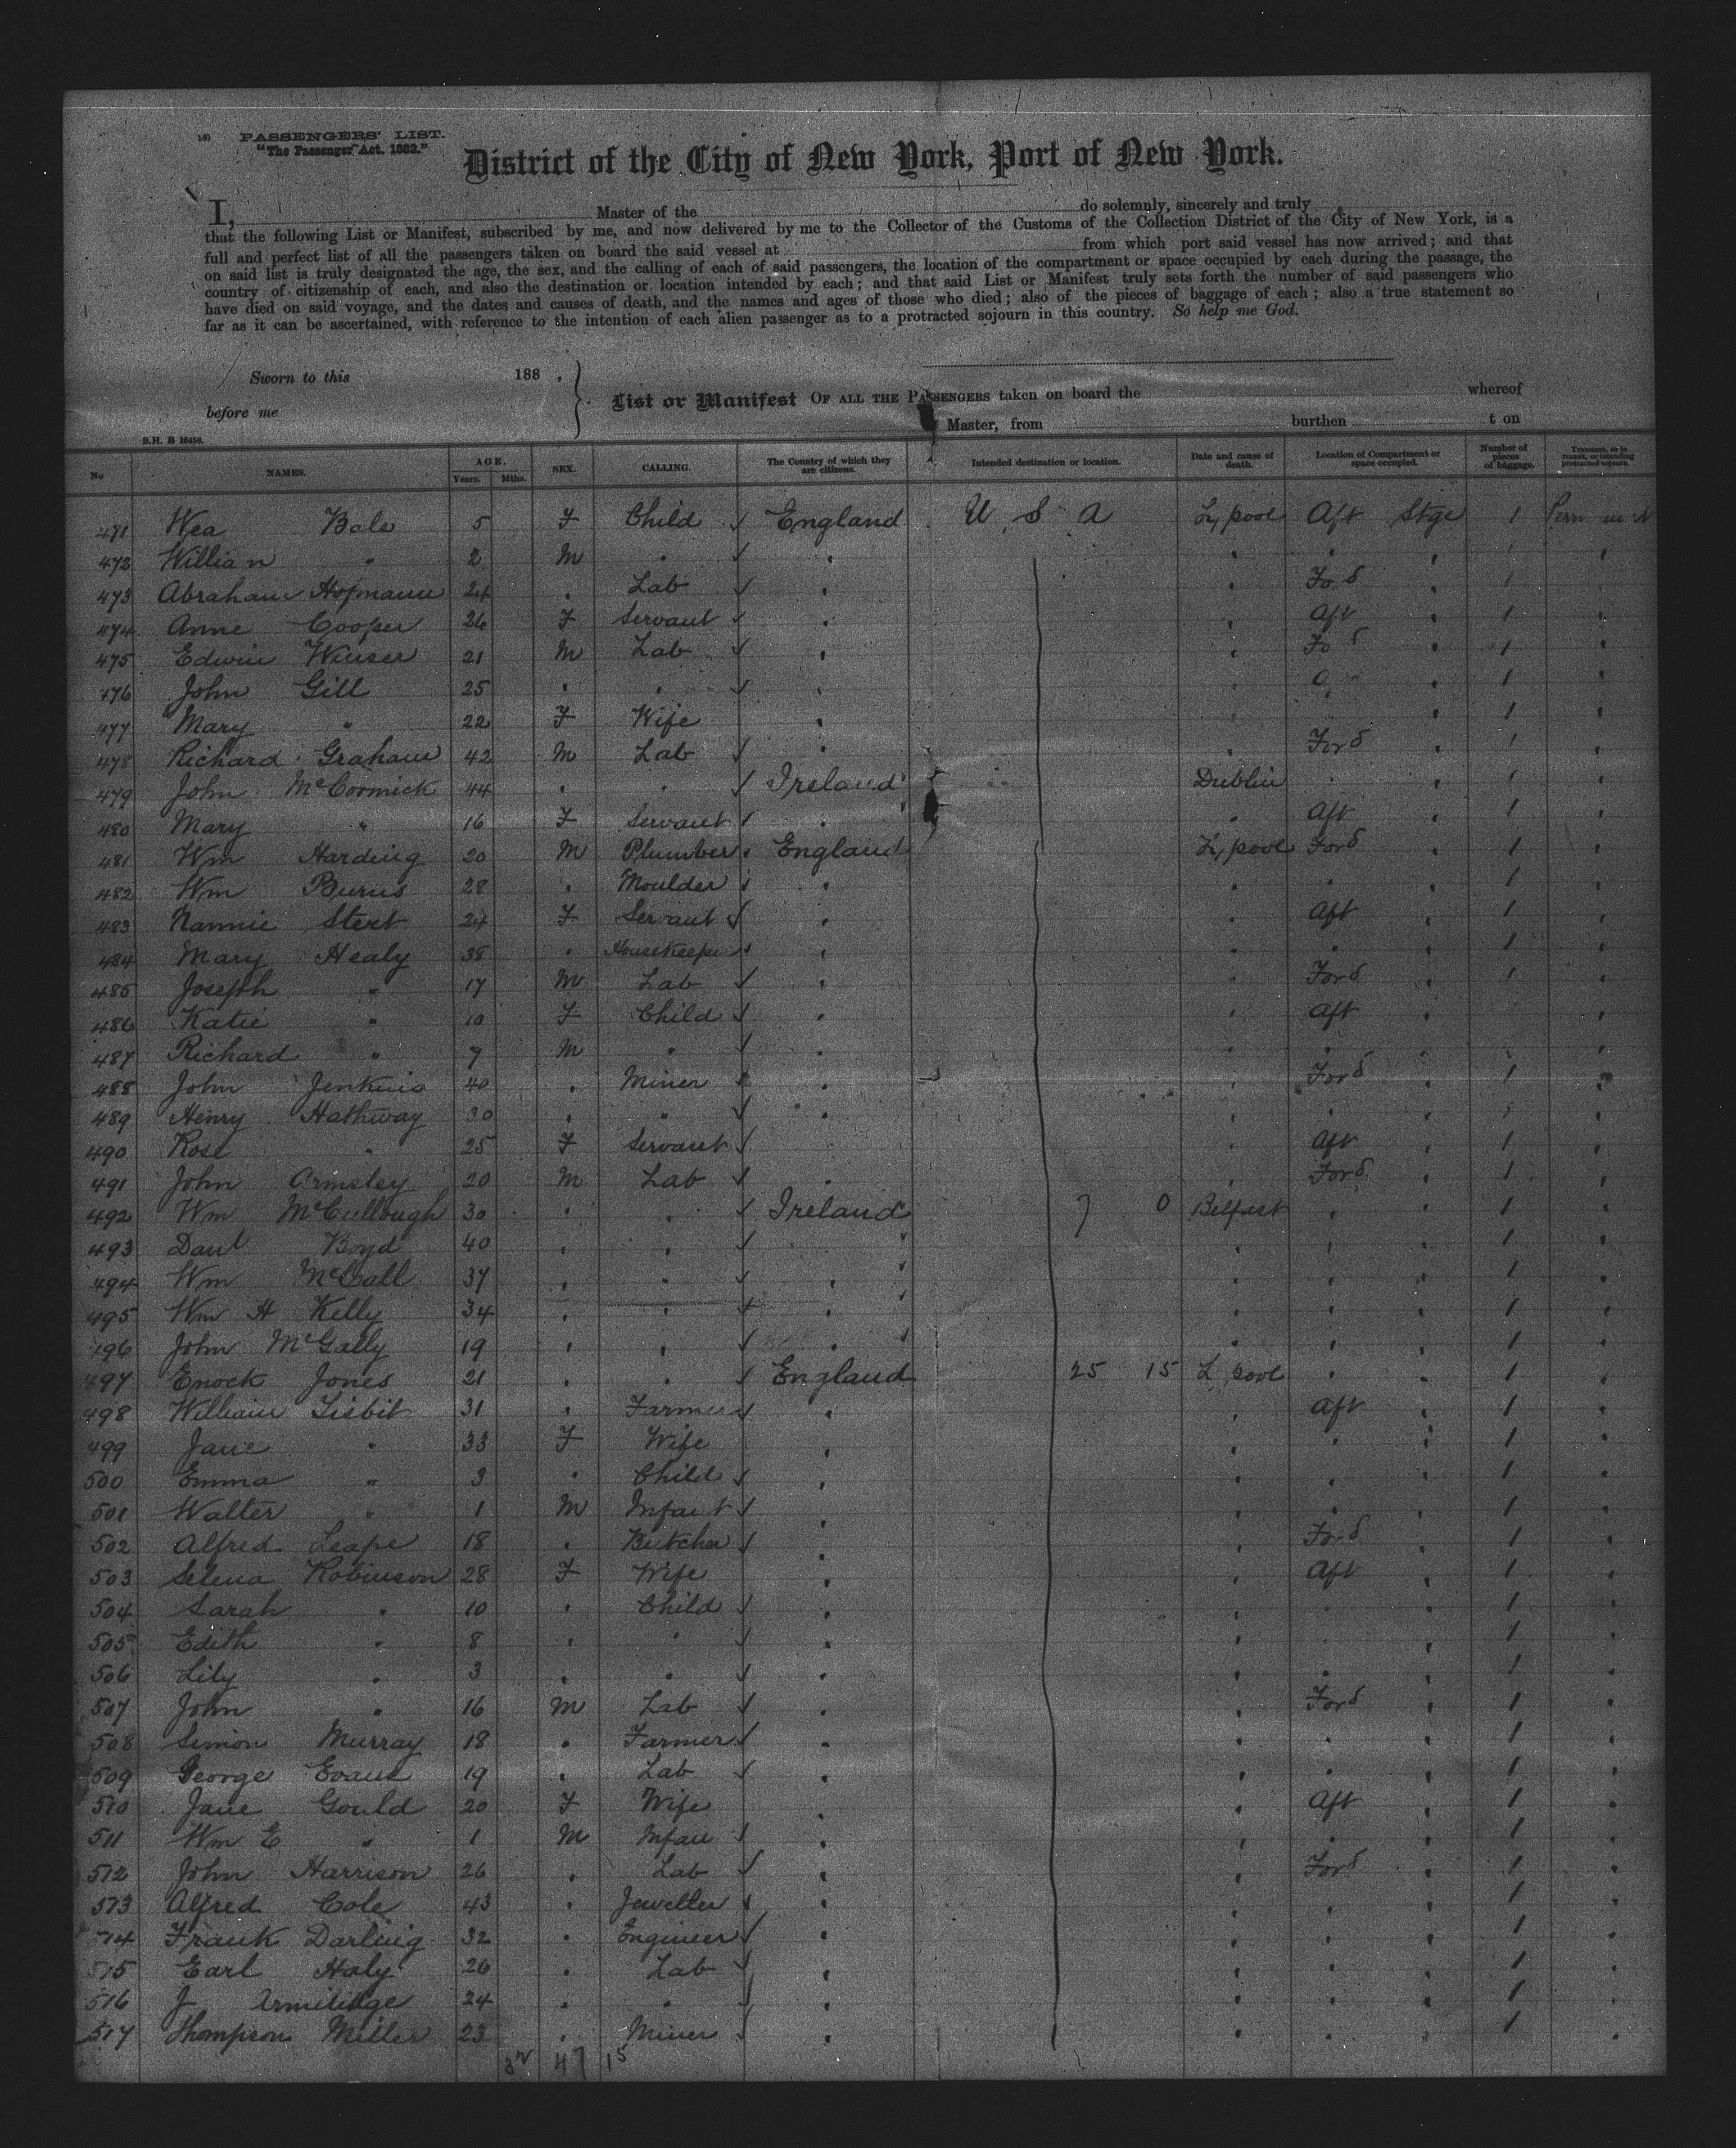 180 PASSENGERS' LIST.
"The Passenger Act. 1882."
District of the City of New York, Port of New York.
I, Master of the do solemnly, sincerely and truly
that the following List or Manifest, subscribed by me, and now delivered by me to the Collector of the Customs of the Collection District of the City of New York, is a
full and perfect list of all the passengers taken on board the said vessel at from which port said vessel has now arrived; and that
on said list is truly designated the age, the sex, and the calling of each of said passengers, the location of the compartment or space occupied by each during the passage, the
country of citizenship of each, and also the destination or location intended by each; and that said List or Manifest truly sets forth the number of said passengers who
have died on said voyage, and the dates and causes of death, and the names and ages of those who died; also of the pieces of baggage of each; also a true statement so
far as it can be ascertained, with reference to the intention of each alien passenger as to a protracted sojourn in this country. So help me God.
Sworn to this 188 .
before me
List or Manifest OF ALL THE PASSENGERS taken on board the whereof
Master, from burthen t on
B.H. B 16456.
No NAMES. AGE. Years. Mths. SEX. CALLING. The Country of which they are citizens. Intended destination or location. Date and cause of death. Location of Compartment or space occupied. Number of pieces of baggage. Transient, or in transit, or intending protracted sojourn.
471 Wea Bale 5 F Child England U S A L,pool Aft Stge 1
472 William " 2 M "
473 Abraham Hofmann 24 " Lab " Ford 1
474 Anne Cooper 26 F Servant " Aft 1
475 Edwin Winser 21 M Lab " Fod 1
476 John Gill 25 " " " 1
477 Mary " 22 F Wife " 1
478 Richard Graham 42 M Lab " Ford 1
479 John McCormick 44 " " Ireland Dublin " 1
480 Mary " 16 F Servant " " Aft 1
481 Wm Harding 20 M Plumber England L,pool Ford 1
482 Wm Burns 28 " Moulder " " " 1
483 Nannie Stert 24 F Servant " " Aft 1
484 Mary Healy 38 " Housekeeper " " " 1
485 Joseph " 17 M Lab " " Ford 1
486 Katie " 10 F Child " " Aft
487 Richard " 7 M " " " "
488 John Jenkins 40 " Miner " " Ford 1
489 Henry Hathway 30 " " " " " 1
490 Rose " 25 F Servant " Aft 1
491 John Ormsley 20 M Lab " " Ford 1
492 Wm McCullough 30 " " Ireland 7 0 Belfast " 1
493 Danl Boyd 40 " " " " " 1
494 Wm McCall 37 " " " " " 1
495 Wm H Kelly 34 " " " " " 1
496 John McGally 19 " " " " " 1
497 Enock Jones 21 " " England 25 15 L pool " 1
498 William Tisbit 31 " Farmer " " Aft 1
499 Jane " 33 F Wife " " " 1
500 Emma " 3 " Child " " " 1
501 Walter " 1 M Infant " " " 1
502 Alfred Leape 18 " Butcher " " Ford 1
503 Selena Robinson 28 F Wife " " Aft 1
504 Sarah " 10 " Child " " " 1
505 Edith " 8 " " " " 1
506 Lily " 3 " " " " " 1
507 John " 16 M Lab " " Ford 1
508 Simon Murray 18 " Farmer " " " 1
509 George Evans 19 " Lab " " " 1
510 Jane Gould 20 F Wife " " Aft 1
511 Wm E " 1 M Infan " " " 1
512 John Harrison 26 " Lab " " Ford 1
513 Alfred Cole 43 " Jeweller " " " 1
514 Frank Darling 32 " Engineer " " " 1
515 Earl Haly 26 " Lab " " " 1
516 J Armitidge 24 " " " " " 1
517 Thompson Miller 23 " Miner " " " 1
47 15